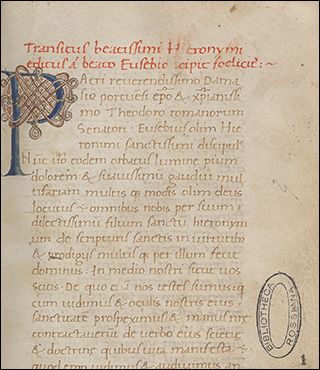 Transitus beatissimi Hieronymi
editus a beato Eusebio
Patri reverendissimo Dama
sio portuesi epo & xpianissi
mo Theodoro romanorum
Senatori · Eusebius olim Hie
ronimi sanctissimi discipul
Nuc vo eodem orbatus lumine pium
dolorem & suavissimū gaudiū mul
tifariam multis q modis olim deus
locutus omnibus nobis per suum
dilectissimū filium sanctū hieronym
um de scripturis sanctis in virtutib
& prodigijs multis q per illum fecit
dominus · In medio nostri sicut vos
scitis · De quo nos testes sumus
cum vidimus & oculis nostris eius
sanctitate prospeximus & manus nrē
contractaverūt de verbo eius scietie
& doctrine quibus vita manifesta
quod ergo vidimus & audivimus
BIBLIOTHECA
ROSSIANA
1